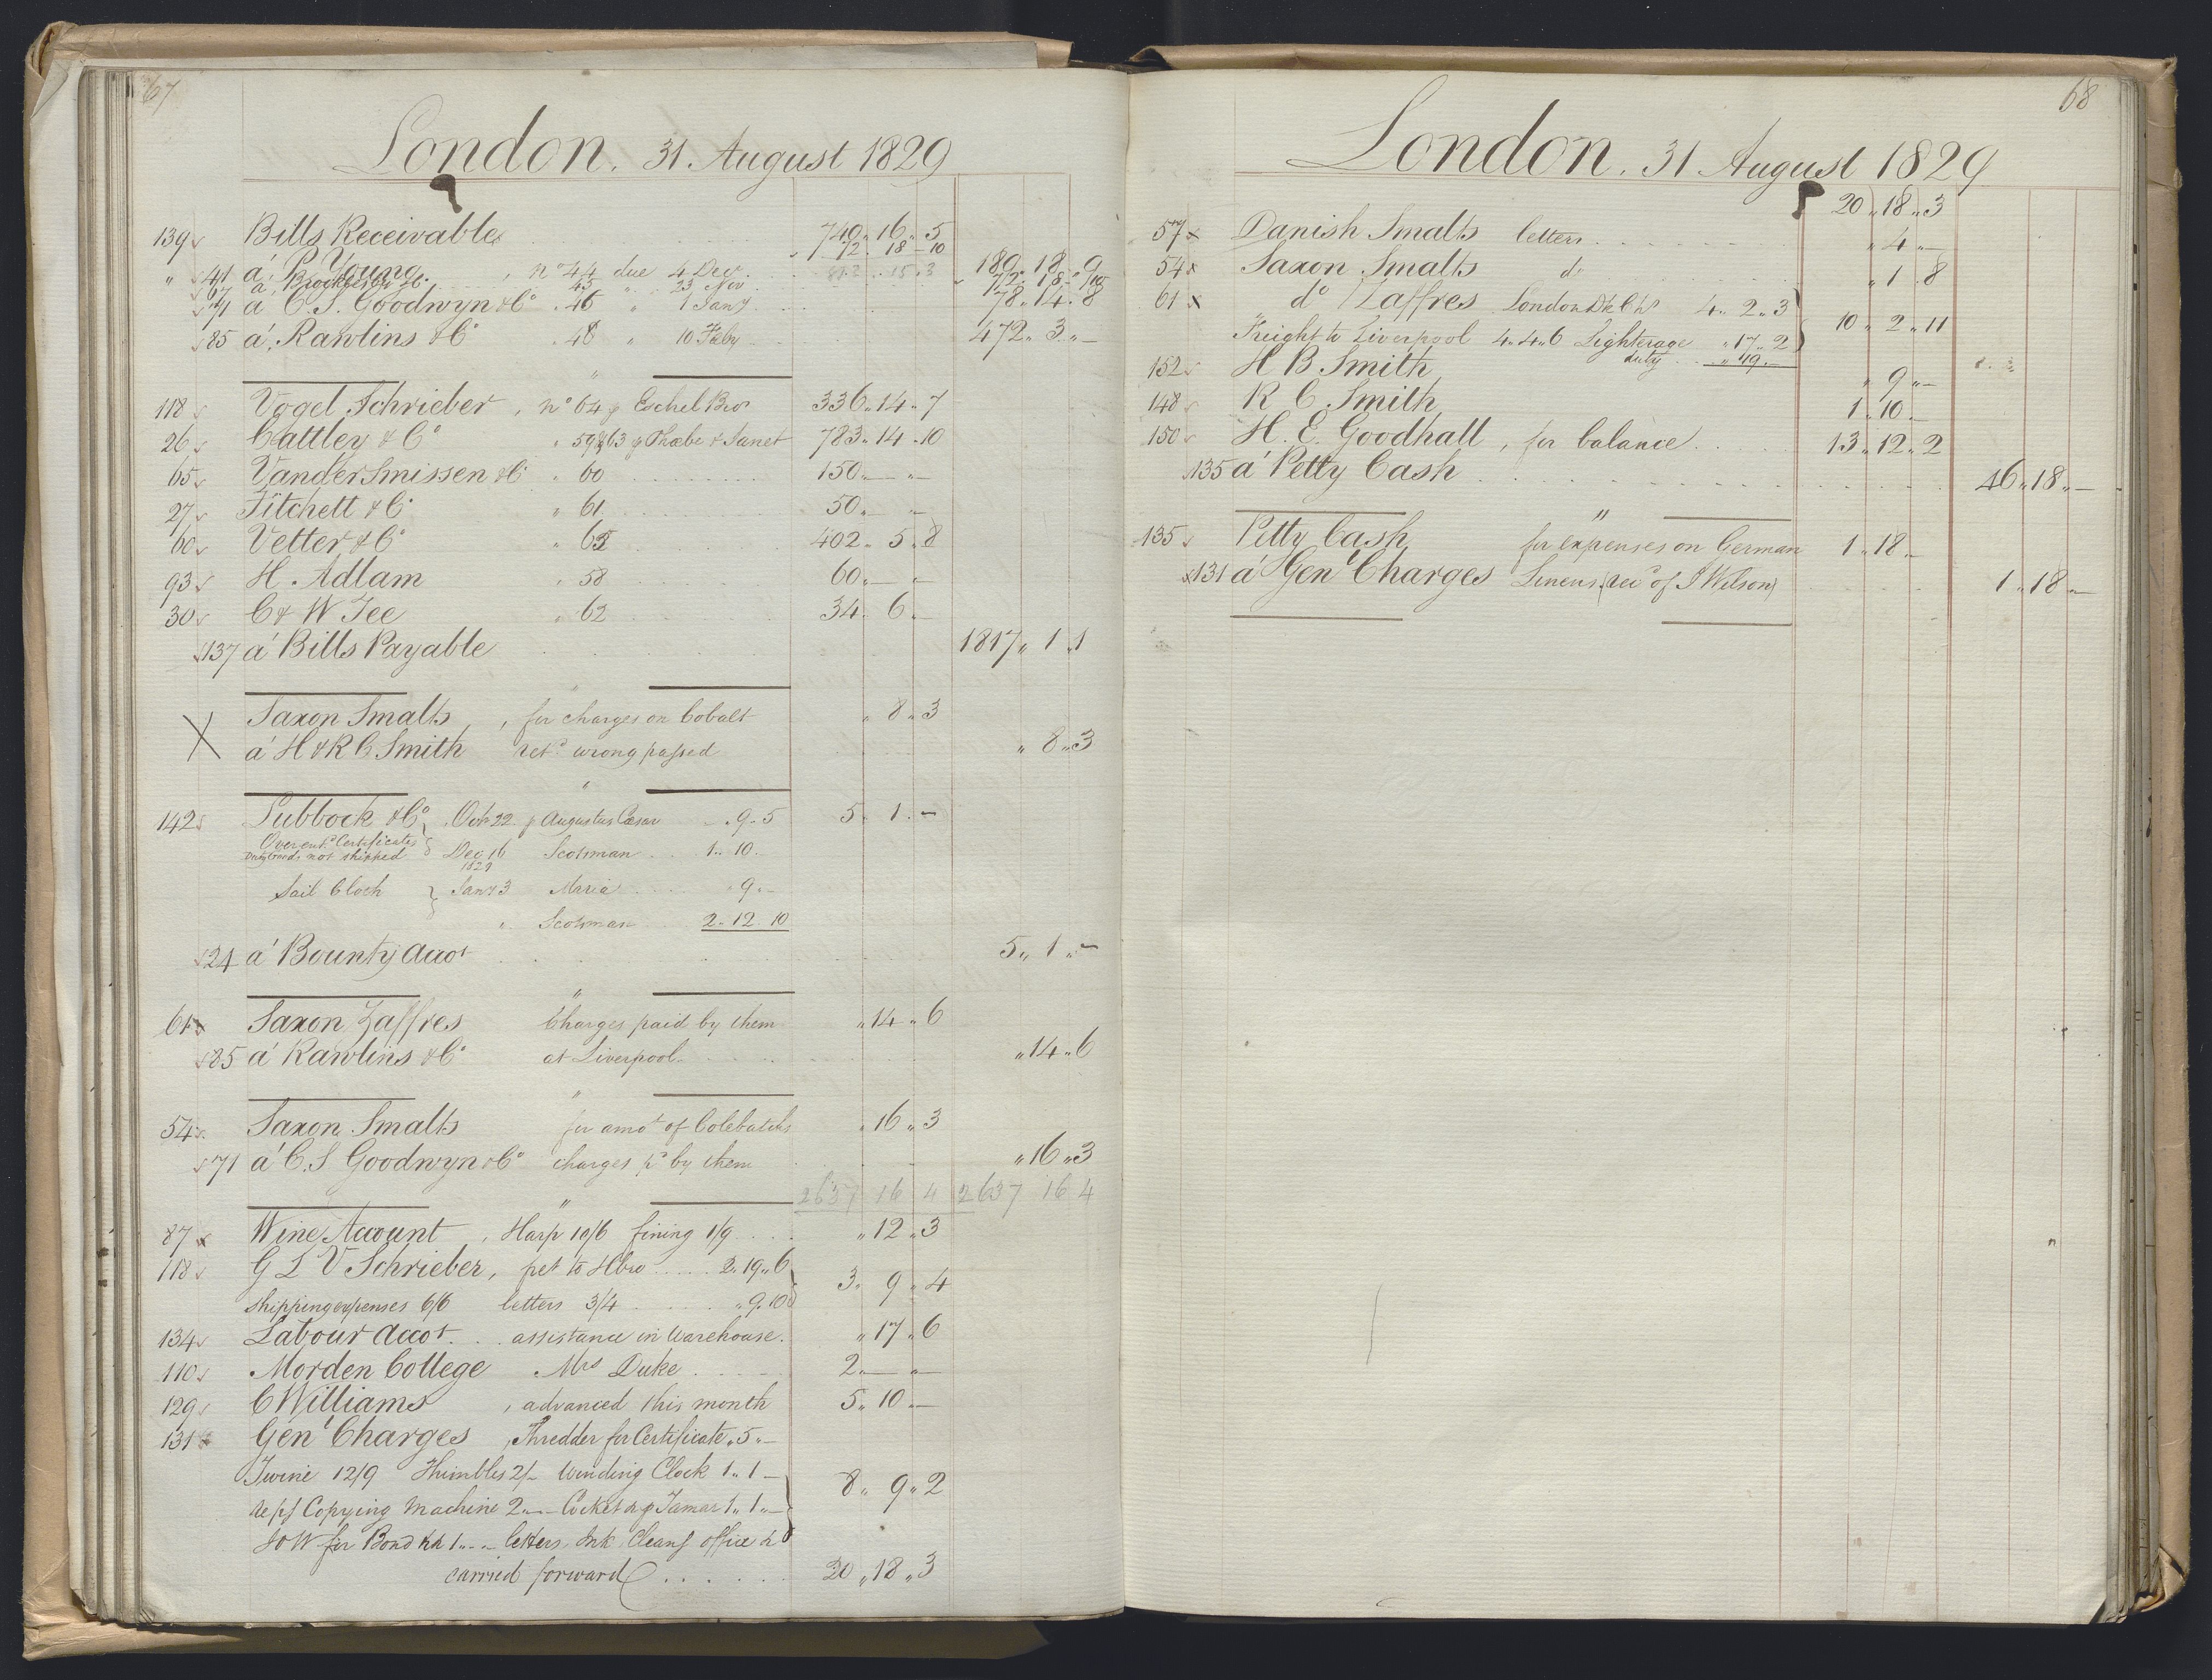 67
London. 31. August 1829
139 Bills Receivable 740 " 16 " 5
" 72 " 18 - 10
" 41 a' P Young, no 44 due 4 Decr. 189 " 18 " 9
67 a' Brockleston &Co 45 " 23 Nov " 72 " 18 " 10
71 a' C. S. Goodwyn &Co " 46 " 1 Jany 78 " 14 " 8
85 a' Rawlins &Co " 48 " 10 Feby 472 " 3 " -
"
118 Vogel Schrieber, no 64 p Eschel Bros 336 " 14 " 7
26 Cattley & Co " 59&63 p Phœbe & Janet 783 " 14 " 10
65 VanderSmissen &Co " 60 150 " - " -
27 Fitchett & Co " 61 50 " - " -
60 Vetter &Co " 65 402 " 5 " 8
93 H. Adlam " 58 60 " - " -
30 C & W Tee " 62 34 " 6 " -
137 a' Bills Payable 1817 " 1 " 1
"
X Saxon Smalts, for charges on Cobalt " 8 " 3
a' H & R C Smith retd. wrong passed " 8 " 3
"
142 Lubbock &Co Octr 22 p Augustus Cæsar " 9 " 5 5 " 1 " -
Over entd Certificates
Duty Goods not shipped Dec 16 Scotsman 1 " 10 "
1829
Sail Cloth Jany 3 Maria " 9 " -
" Scotsman 2 " 12 " 10
124 a' Bounty Accot 5 " 1 " -
"
61 x Saxon Zaffres Charges paid by them " 14 " 6
85 a' Rawlins &Co at Liverpool " 14 " 6
"
54 Saxon Smalts for amot of Colebatchs " 16 " 3
71 a' C. S Goodwyn &Co charges pd by them " 16 " 3
2637 16 4 2637 16 4
"
87 x Wine Account, Harp 10/6 fining 1/9 " 12 " 3
118 G L V Schrieber, pet to Hbro 2 " 19 " 6
3 " 9 " 4
Shipping expenses 6/6 letters 3/4 " 9 " 10
134 Labour Accot. assistance in Warehouse. " 17 " 6
110 Morden College Mrs Duke 2 " - " -
129 C Williams, advanced this month 5 " 10 " -
131 Genl Charges, Thredder for Certificate " 5 " -
Twine 12/9 Thimbles 2/- Winding Clock 1 " 1 -
8 " 9 " 2
reps Copying Machine 2 " - " - Cocket &c p Tamar 1 " 1 " -
JOW for Bond &c 1 " - " - letters, Ink, Cleang office &c
carried forward 20 " 18 " 3
68
London. 31 August 1829
20 " 18 " 3
57 x Danish Smalts letters " 4 " -
54 x Saxon Smalts do " 1 " 8
61 x do Zaffres London Dk Chs 4 " 2 " 3
10 " 2 " 11
Freight to Liverpool 4 " 4 " 6 Lighterage " 17 " 2
duty " 19 " -
152 H B Smith " 9 " -
148 R C Smith 1 " 10 " -
150 H. E. Goodhall, for balance 13 " 12 " 2
135 a' Petty Cash 46 " 18 " -
"
135 Petty Cash for expenses on German 1 " 18 " -
x131 a' Genl Charges Linens (recd of J Wilson) 1 " 18 " -